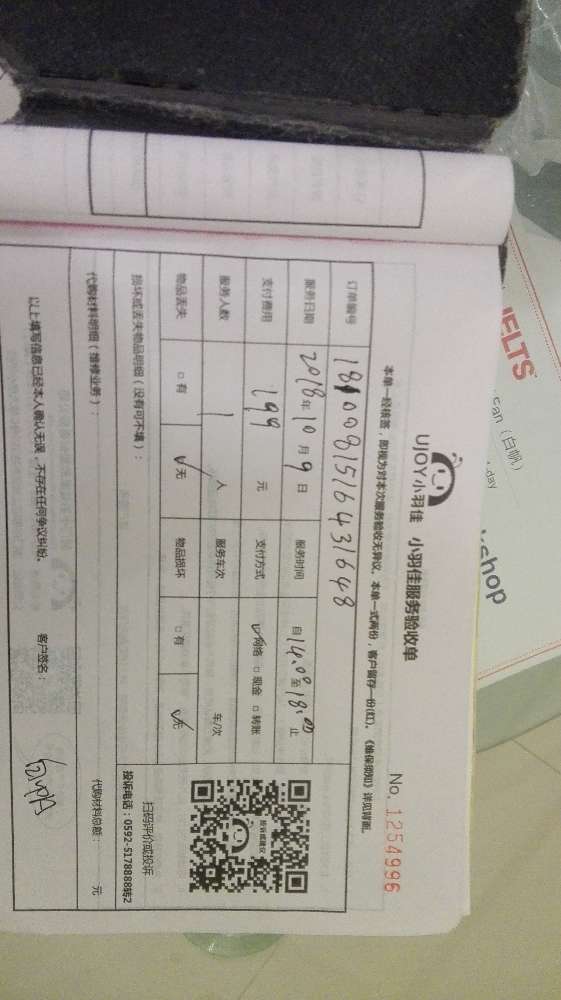 UJOY小羽佳 小羽佳服务验收单
No. 1254996
本单一经核签，即视为对本次服务验收无异议。本单一式两份，客户留存一份(红)。《维保须知》详见背面。
订单编号 1810081516431648
服务日期 2018年10月9日 服务时间 自14:00至18:00止
支付费用 199元 支付方式 ☑网络 □现金 □转账
服务人数 1人 服务车次 车/次
物品丢失 □有 ☑无 物品损坏 □有 ☑无
投诉或建议
扫码评价或投诉
投诉电话：0592-5178888转2
损坏或丢失物品明细（没有可不填）：
代购材料明细（维修业务）： 代购材料总额： 元
以上填写信息已经本人确认无误，不存在任何争议纠纷。 客户签名：
IELTS
can（白帆）
.day
shop